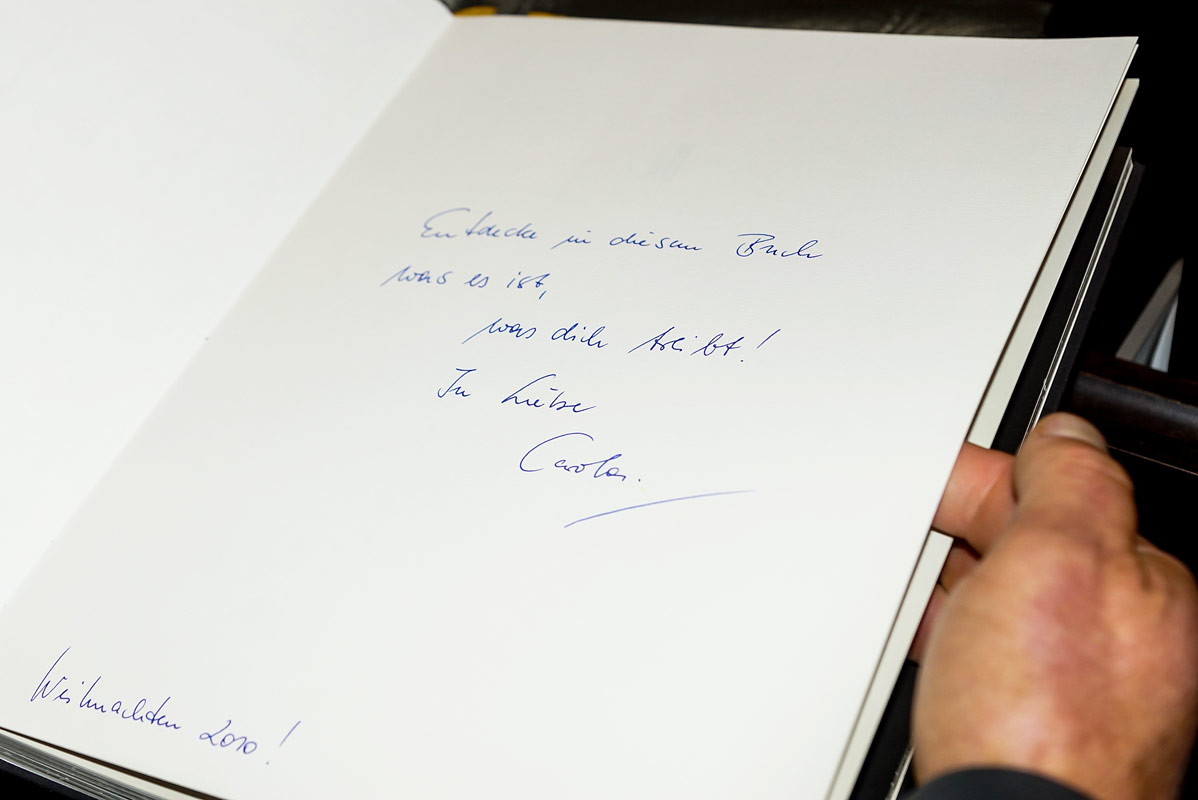 Entdecke in diesem Buch
was es ist,
was dich treibt!
In Liebe
Carola.
Weihnachten 2010!